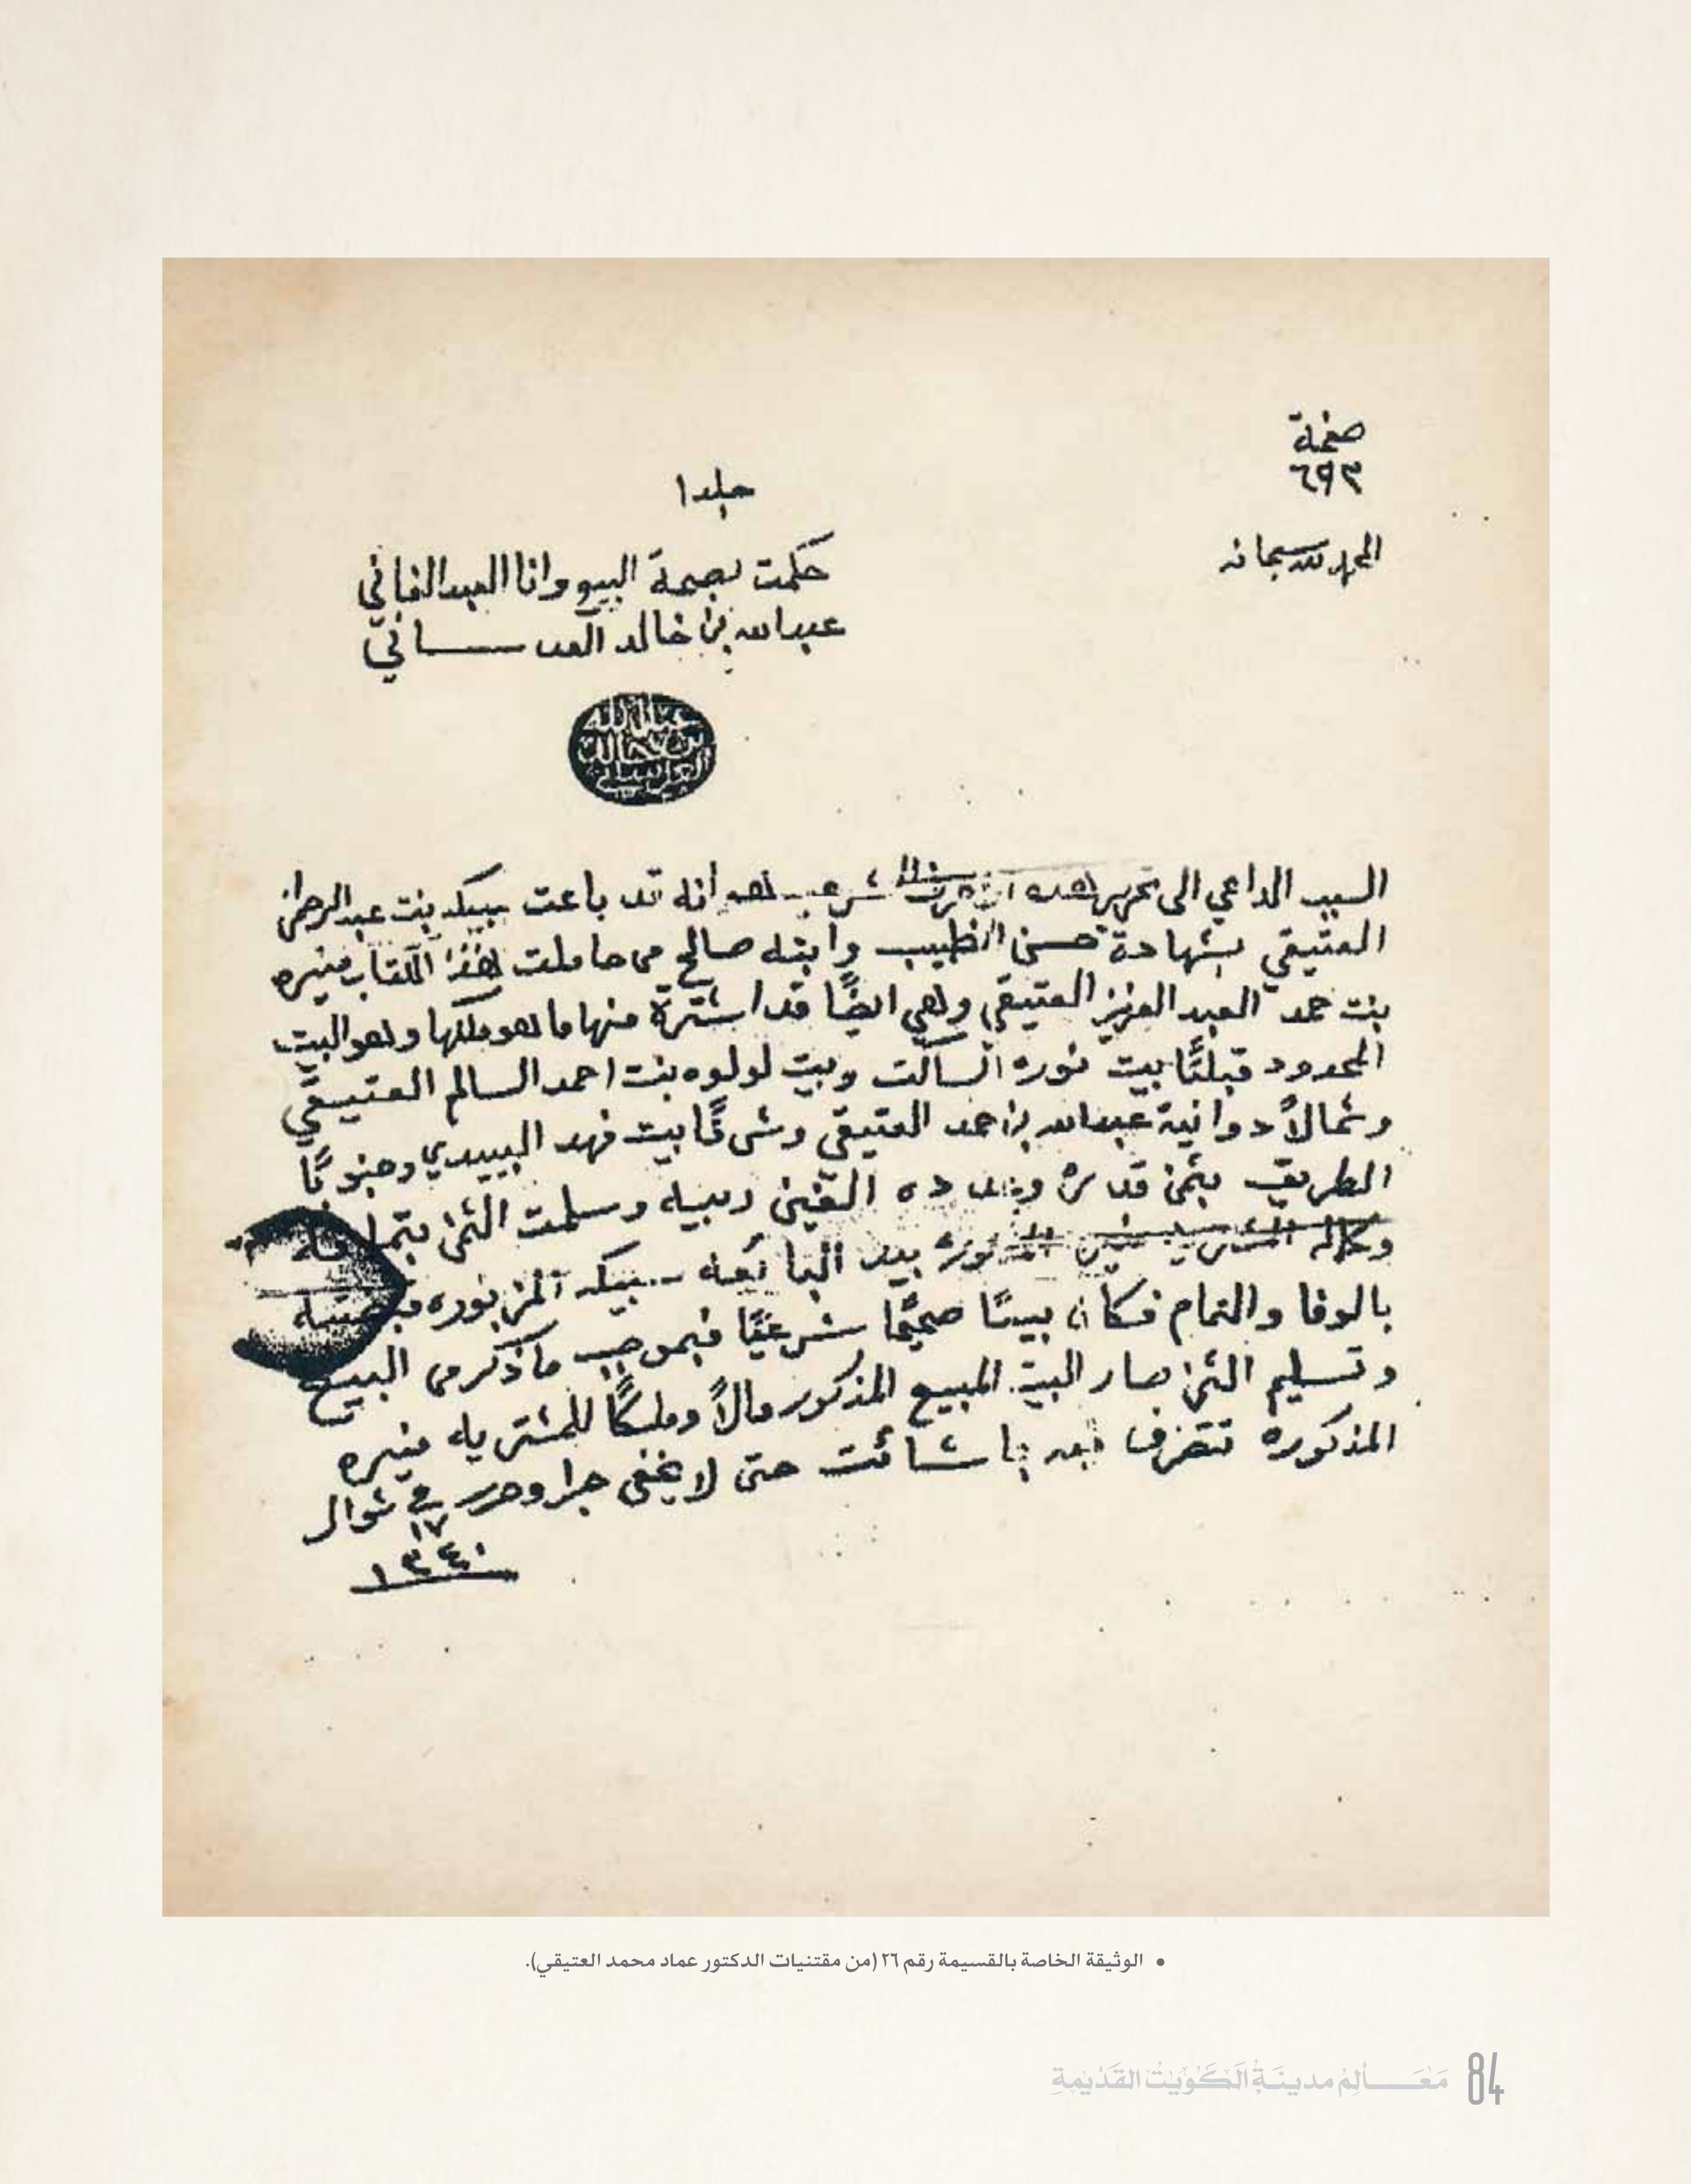 صفحة
٦٩٣
جلد ١
الحمد لله سبحانه
حكمت بصحة البيع وانا العبد الفاني
عبدالله بن خالد العدساني
عبدالله
بن خالد
العدساني
السبب الداعي الى تحرير هذه الاحرف الشرعيه هو انه قد باعت سبيكه بنت عبدالرحمن
العتيقي بشهادة حسن الخطيب وابنه صالح من حاملت هذا الكتاب منيره
بنت حمد العبدالعزيز العتيقي وهي ايضًا قد اشترة منها ما هو ملكها وهو البيت
المحدود قبلتًا بيت نوره السالت وبيت لولوه بنت احمد السالم العتيقي
وشمالاً دوانية عبدالله بن احمد العتيقي وشرقًا بيت فهد البييدي وجنوبًا
الطريق بثمن قدره وعدده الفين ربيه وسلمت الثمن بتمامه
وكاله المشتريه المزبوره بيد البائعه سبيكه المزبوره فقبضته
بالوفا والتمام فكان بيعًا صحيحًا شرعيًا فبموجب ما ذكر من البيع
وتسليم الثمن صار البيت المبيع المذكور مالاً وملكًا للمشتريه منيره
المذكوره تتصرف فيه بما شائت حتى لا يخفى جرا وحرر في شوال
١٧
١٣٤٠
• الوثيقة الخاصة بالقسيمة رقم ٢٦ (من مقتنيات الدكتور عماد محمد العتيقي).
84 مَعَالِمُ مدينَةِ الكُوَيْتْ القَدِيمَةِ